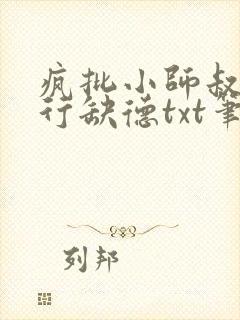 疯批小师叔
行缺德txt筆
列邦